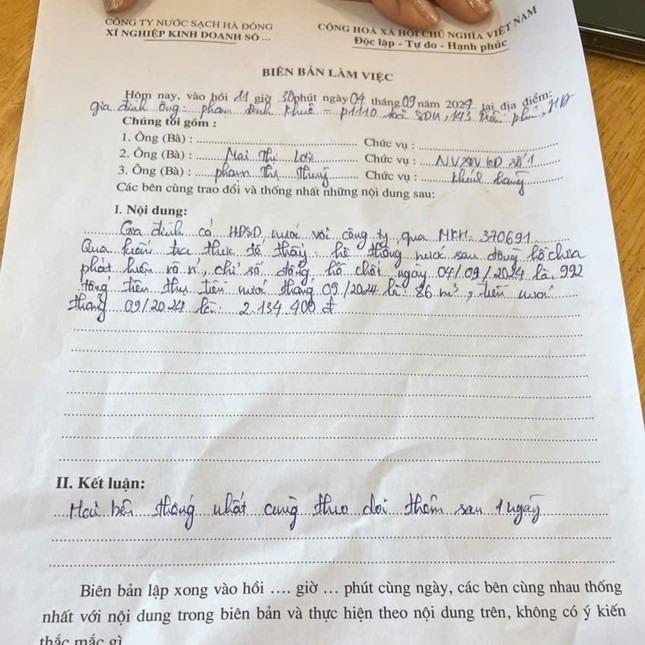 CÔNG TY NƯỚC SẠCH HÀ ĐÔNG
XÍ NGHIỆP KINH DOANH SỐ ...
CỘNG HOÀ XÃ HỘI CHỦ NGHĨA VIỆT NAM
Độc lập - Tự do - Hạnh phúc
BIÊN BẢN LÀM VIỆC
Hôm nay, vào hồi 11 giờ 30 phút ngày 04 tháng 09 năm 2024 tại địa điểm:
gia đình ông: phạm đình Khuê - P1110 toà SDU, 143 Trần phú, HĐ
Chúng tôi gồm :
1. Ông (Bà) : ........ Chức vụ : ........
2. Ông (Bà) : Mai Thị Lơ Chức vụ : N.V XN KD số 1
3. Ông (Bà) : phạm Thị Chức vụ : khách hàng
Các bên cùng trao đổi và thống nhất những nội dung sau:
I. Nội dung:
Gia đình có HĐSD nước với công ty, qua MKH: 370691
Qua kiểm tra thực tế thấy: hệ thống nước sau đồng hồ chưa
phát hiện rò rỉ, chỉ số đồng hồ chốt ngày 04/09/2024 là 992
tổng tiêu thụ tiền nước tháng 09/2024 là: 86 m³, tiền nước
tháng 09/2024 là: 2.134.400 đ
II. Kết luận:
Hai bên thống nhất cùng theo dõi thêm sau 1 ngày
Biên bản lập xong vào hồi .... giờ ... phút cùng ngày, các bên cùng nhau thống
nhất với nội dung trong biên bản và thực hiện theo nội dung trên, không có ý kiến
thắc mắc gì